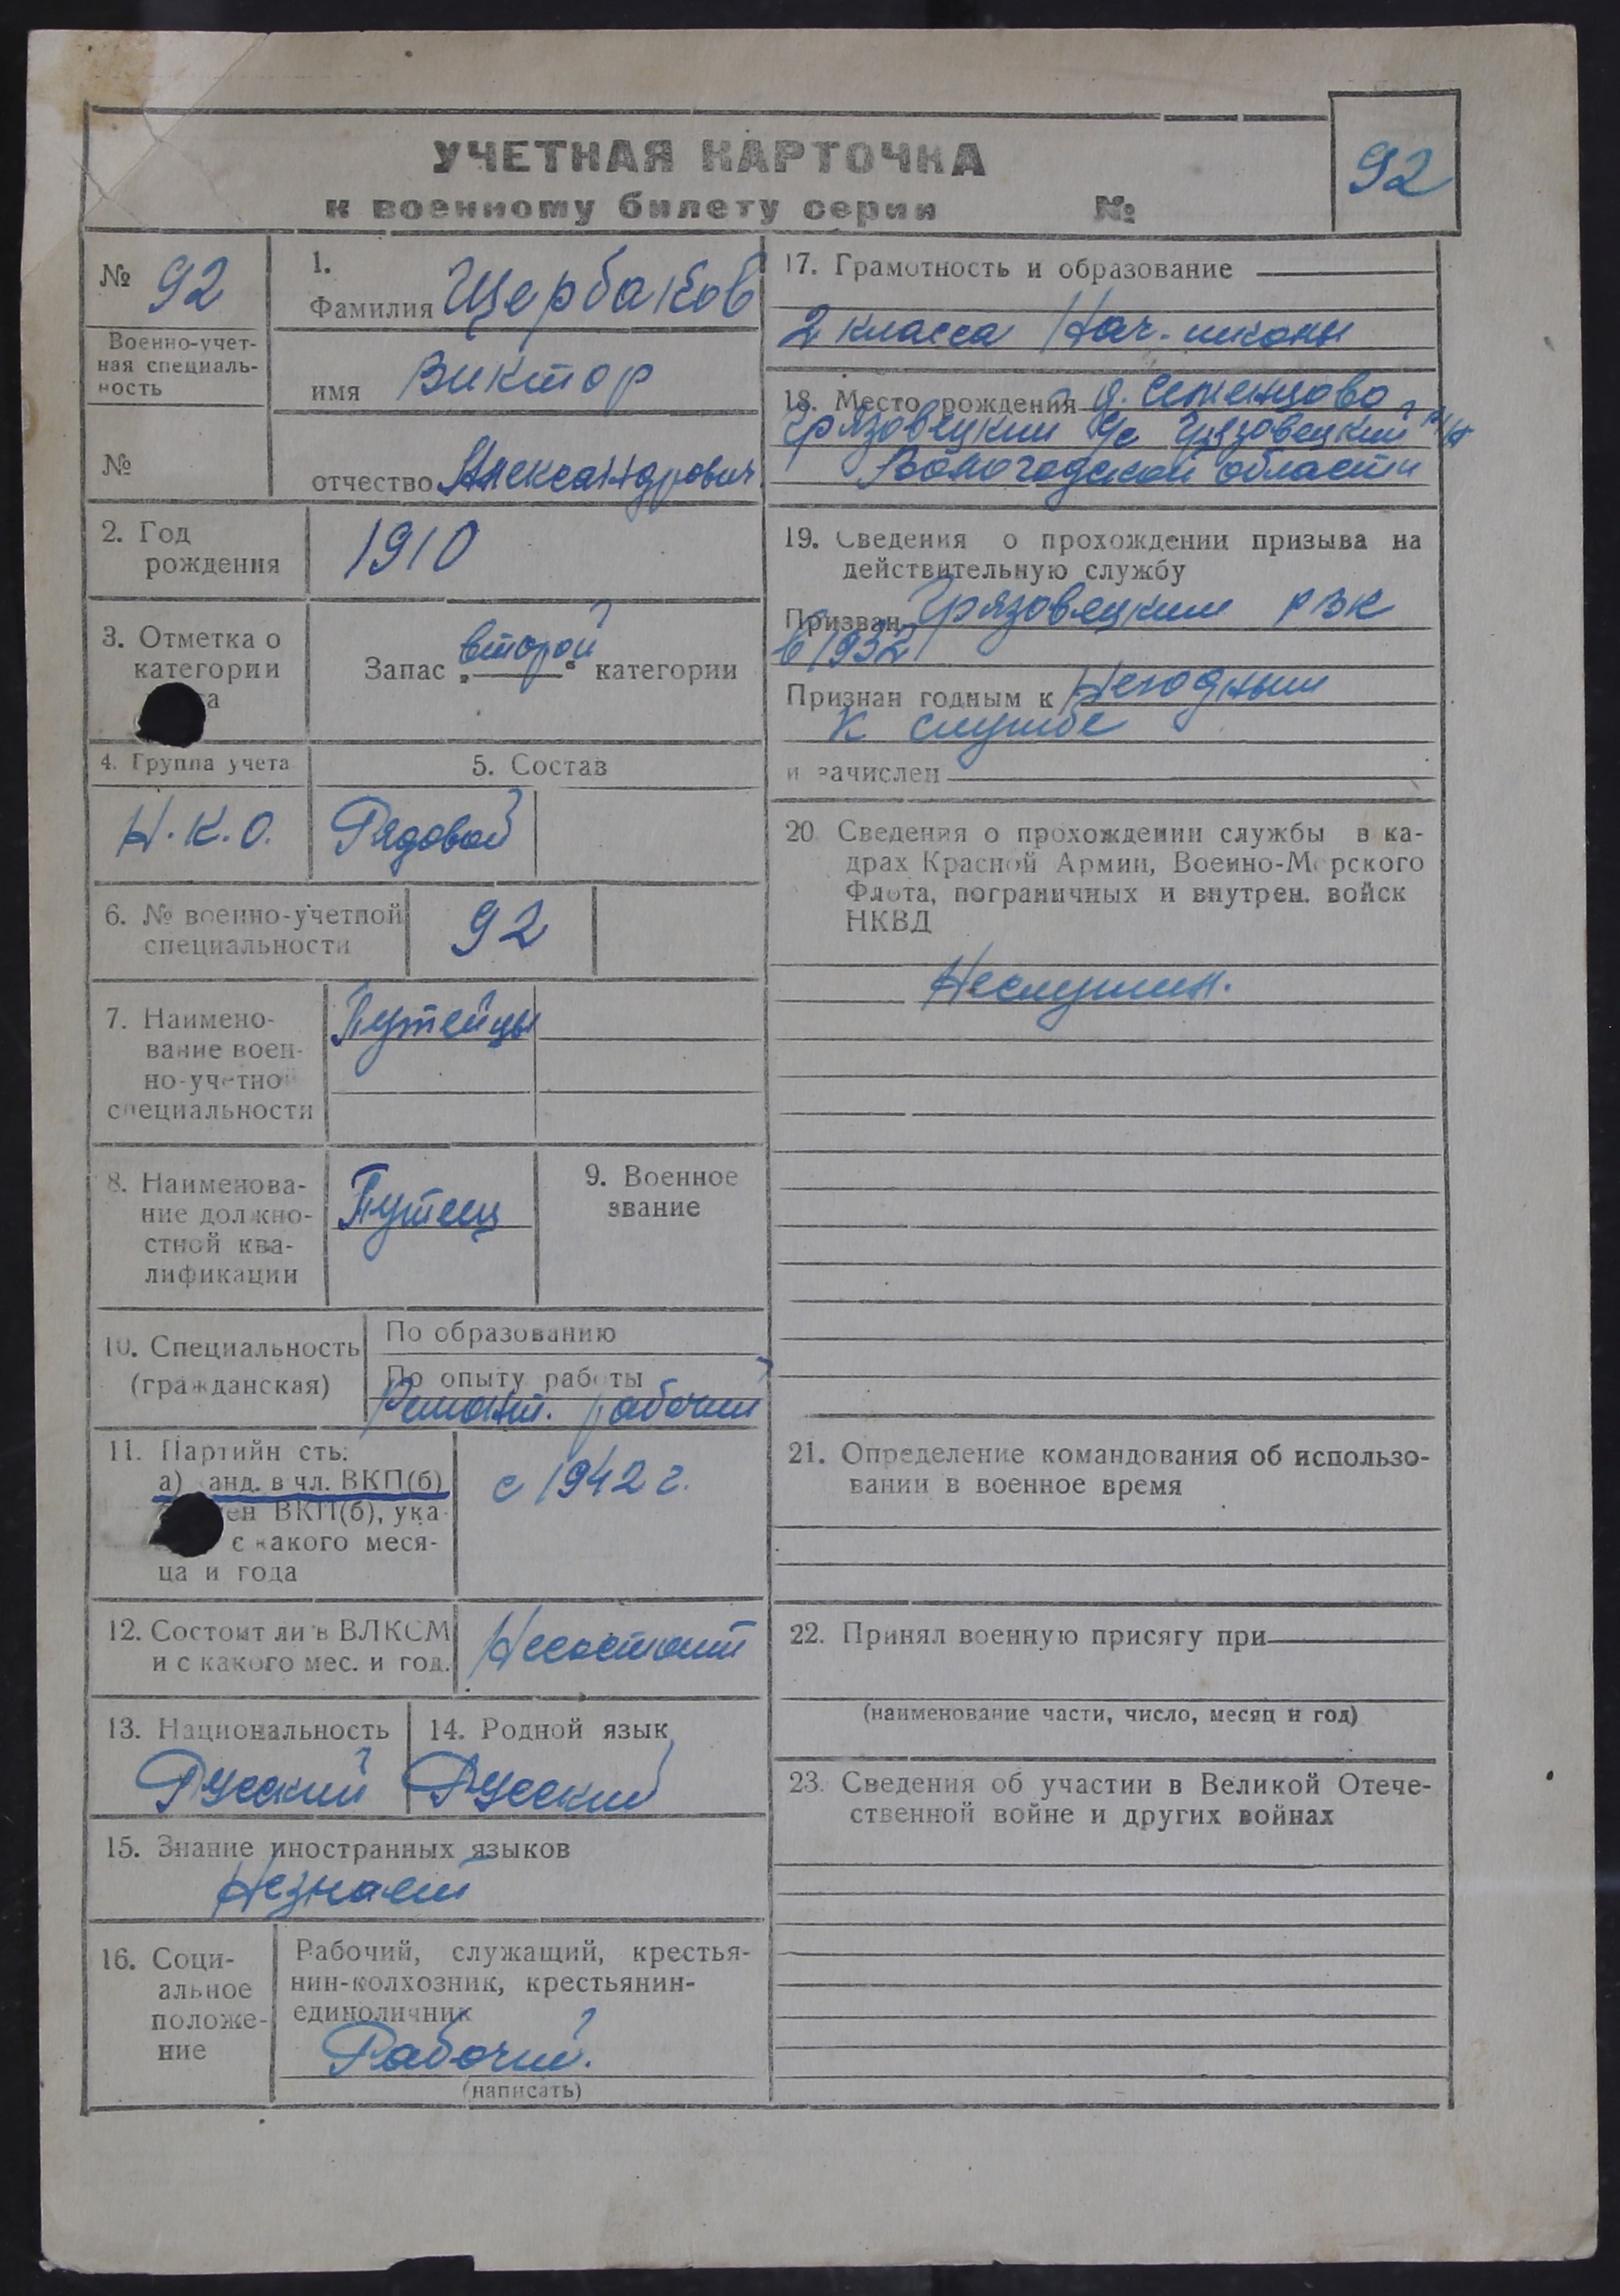 УЧЕТНАЯ КАРТОЧКА
к военному билету серии №
92
№ 92
Военно-учет-
ная специаль-
ность
№
1.
Фамилия Щербаков
имя Виктор
отчество Александрович
2. Год
рождения
1910
3. Отметка о
категории
а
Запас „второй“ категории
4. Группа учета
Н.К.О.
5. Состав
Рядовой
6. № военно-учетной
специальности
92
7. Наимено-
вание воен-
но-учетно
специальности
Путейцы
8. Наименова-
ние должно-
стной ква-
лификации
Путеец
9. Военное
звание
10. Специальность
(гражданская)
По образованию
По опыту работы
Ремонт. рабочий
11. Партийн сть:
а) анд. в чл. ВКП(б)
ен ВКП(б), ука-
с какого меся-
ца и года
с 1942 г.
12. Состоит ли в ВЛКСМ
и с какого мес. и год.
Несостоит
13. Национальность
Русский
14. Родной язык
Русский
15. Знание иностранных языков
Незнает
16. Соци-
альное
положе-
ние
Рабочий, служащий, крестья-
нин-колхозник, крестьянин-
единоличник
Рабочий.
(написать)
17. Грамотность и образование
2 класса Нач. школы
18. Место рождения д. Семенцово
Грязовецкий с/с Грязовецкий р/н
Вологодской области
19. Сведения о прохождении призыва на
действительную службу
Призван Грязовецким РВК
в 1932
Признан годным к Негодным
к службе
и зачислен
20 Сведения о прохождении службы в ка-
драх Красной Армии, Военно-Морского
Флота, пограничных и внутрен. войск
НКВД
Неслужил.
21. Определение командования об использо-
вании в военное время
22. Принял военную присягу при
(наименование части, число, месяц и год)
23. Сведения об участии в Великой Отече-
ственной войне и других войнах